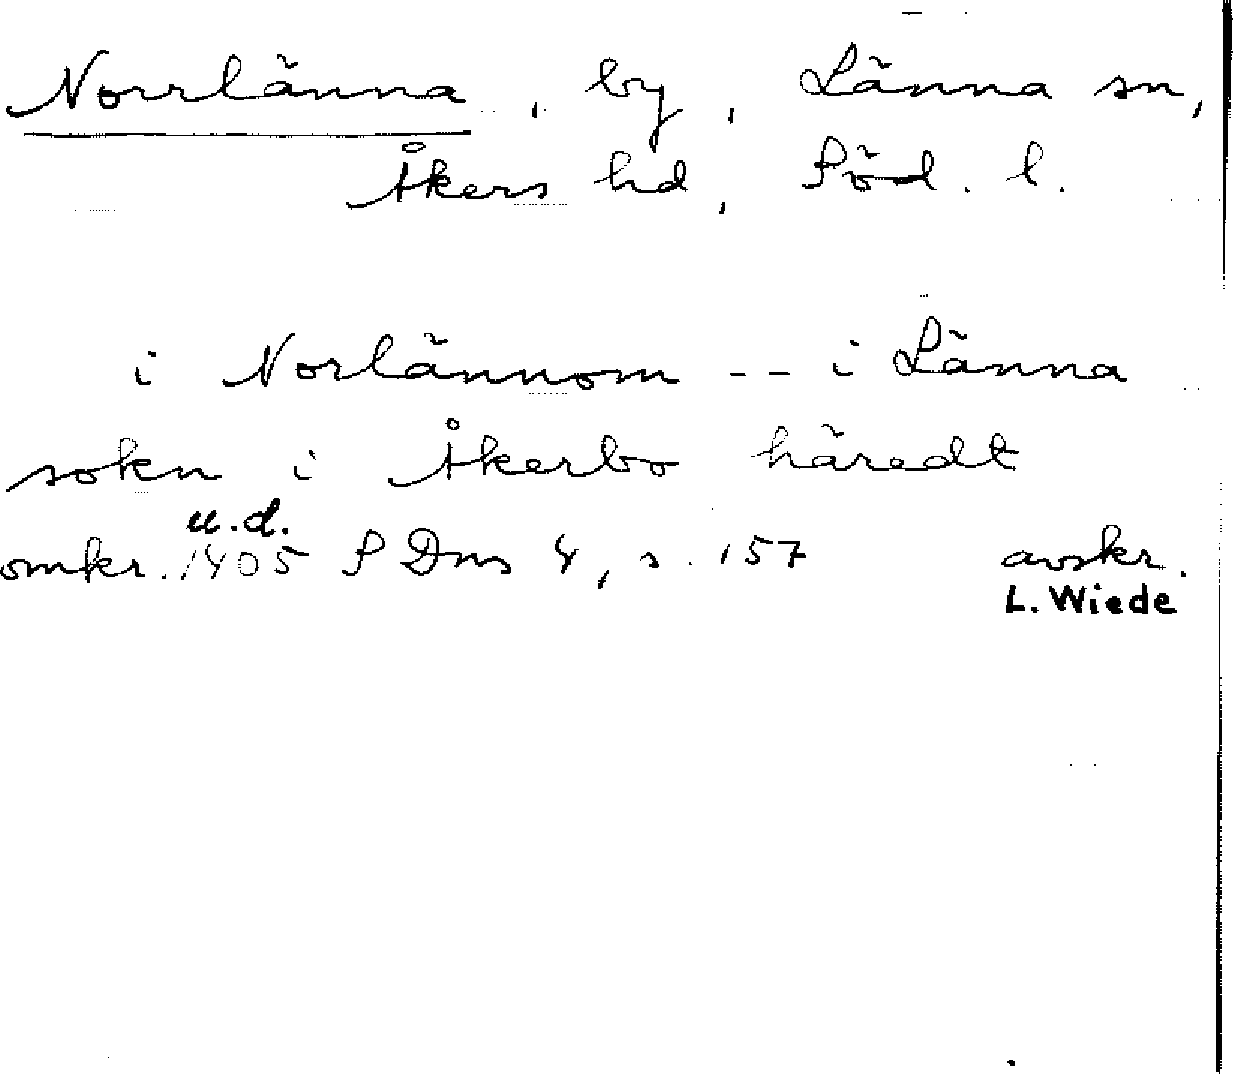 Norrlänna, by, Länna sn,
Åkers hd, Söd. l.
i Norlännom -- i Länna
sokn i Åkerbo häredt
u.d.
omkr. 1405 SDns 4, s. 157 avskr.
L. Wiede